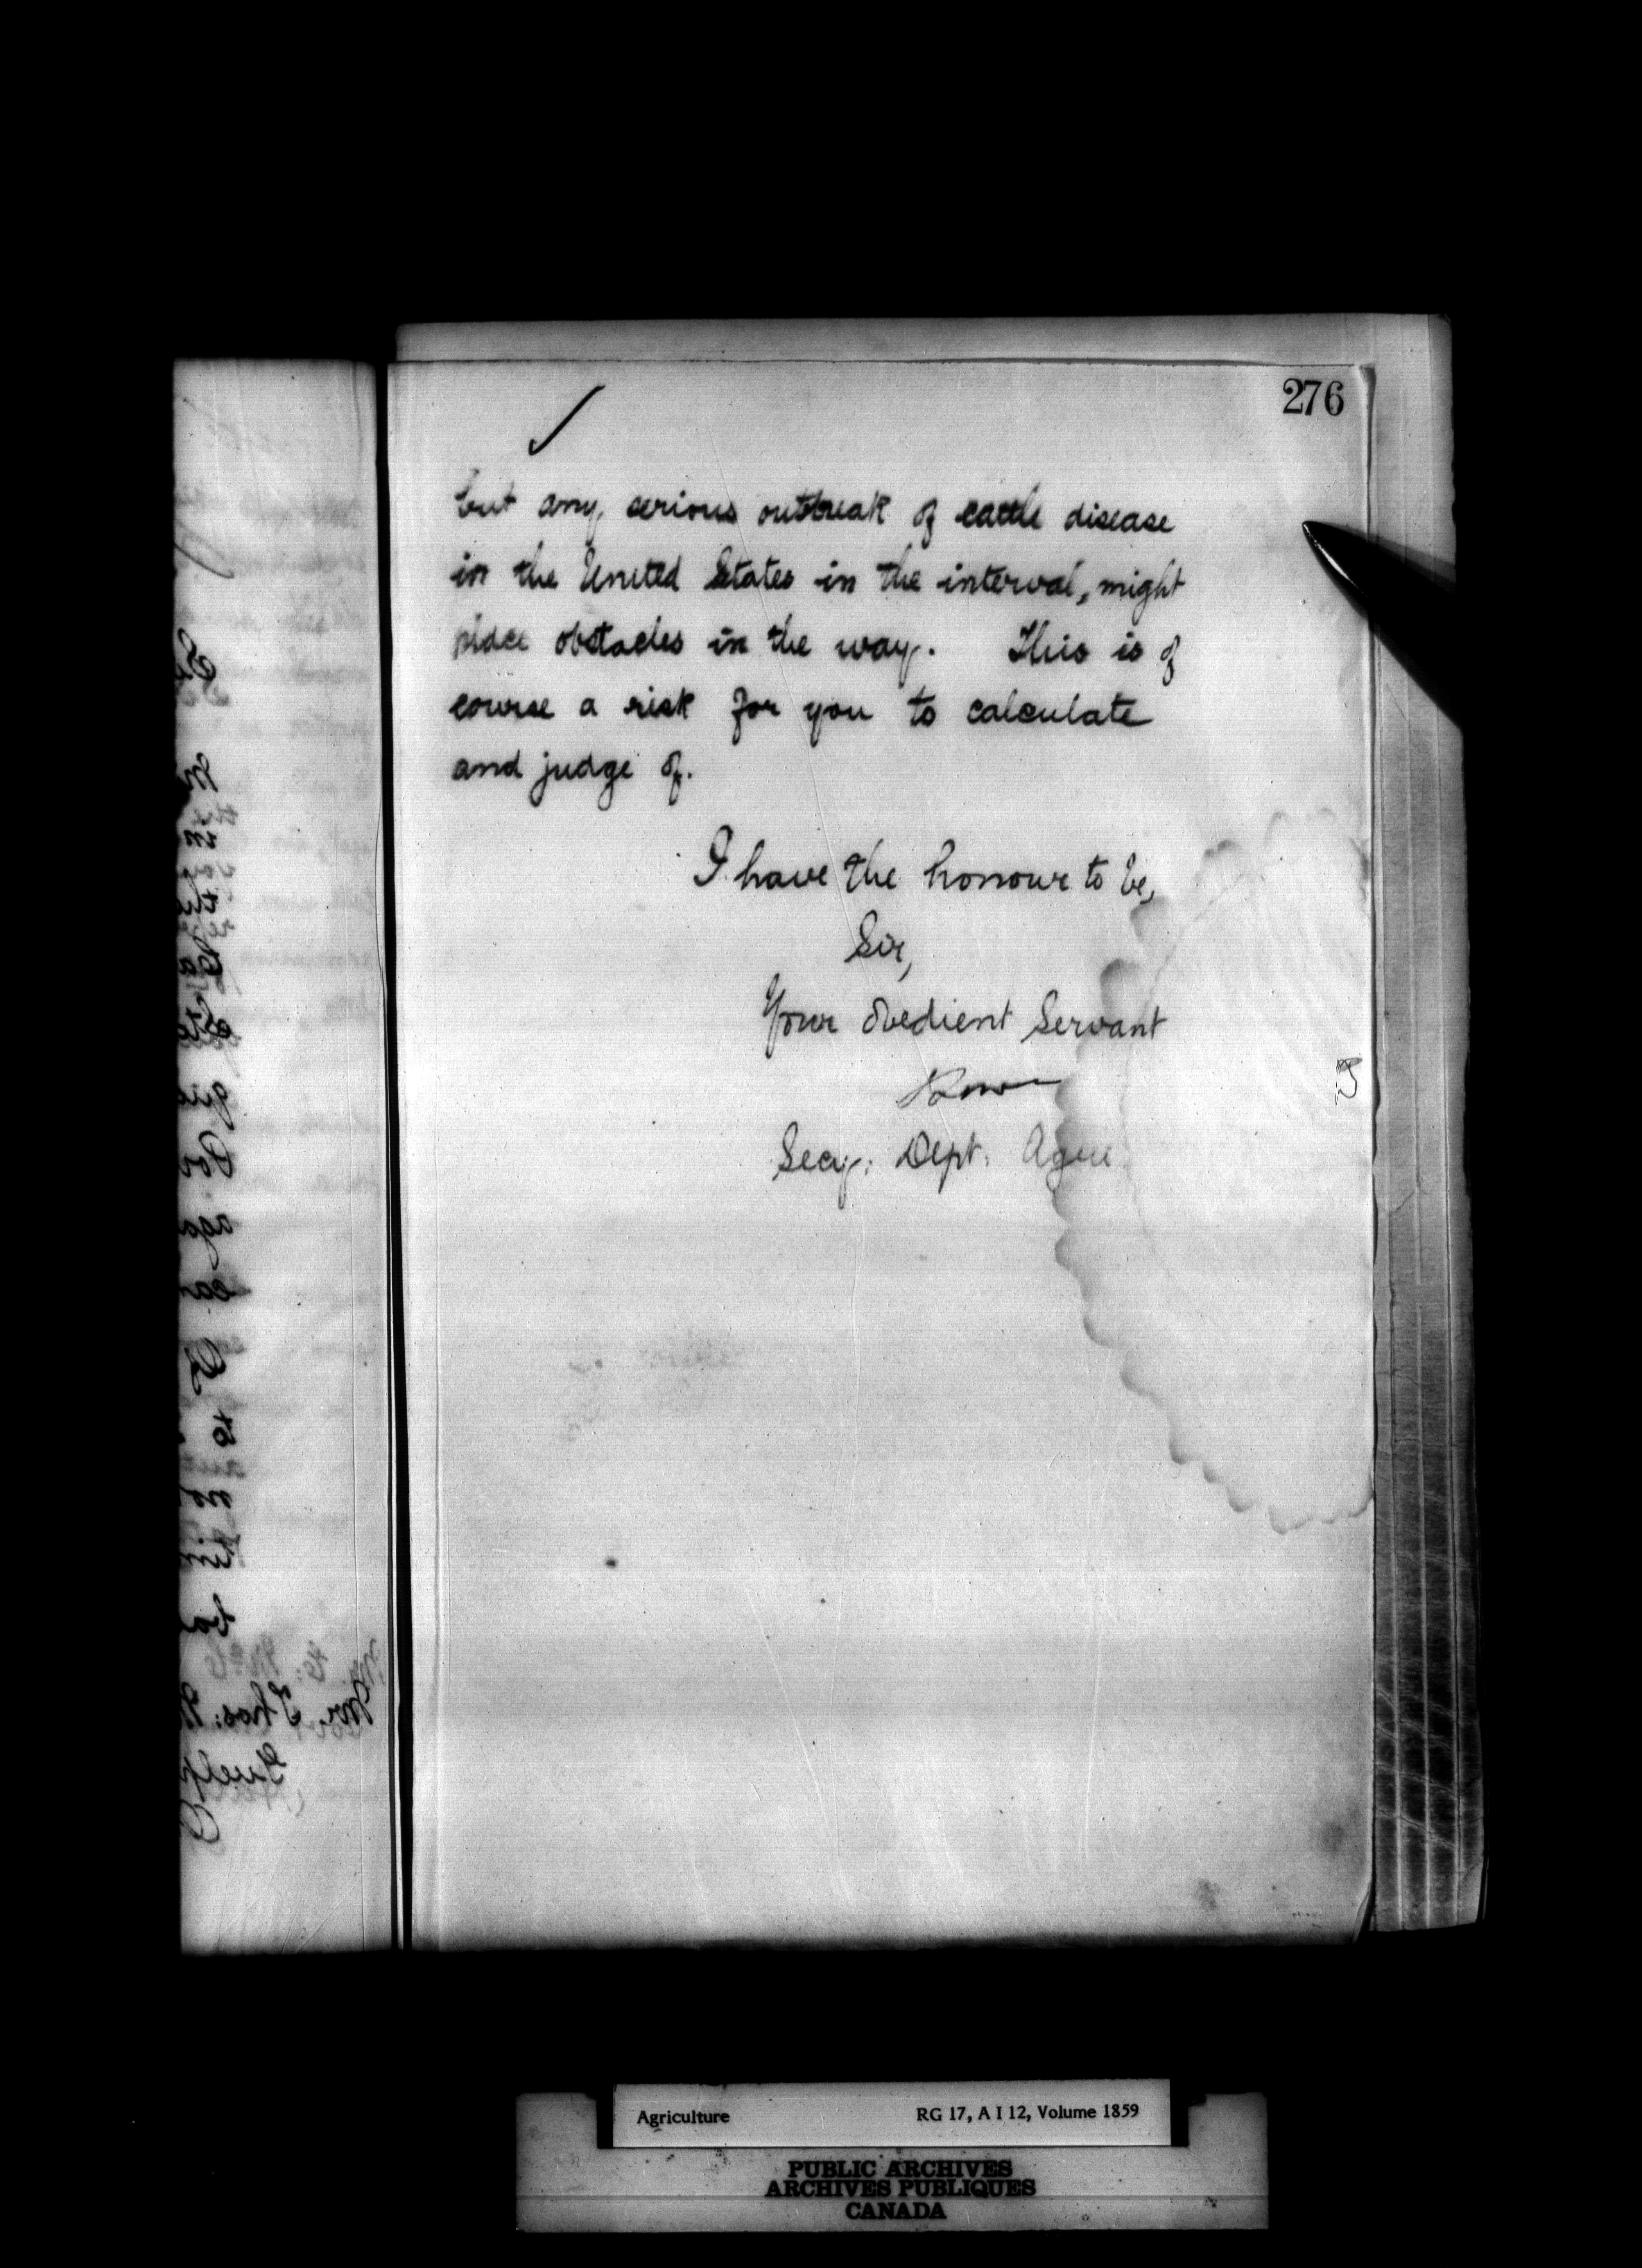 276
but any serious outbreak of cattle disease
in the United States in the interval, might
place obstacles in the way. This is of
course a risk for you to calculate
and judge of.
I have the honour to be,
Sir,
Your obedient Servant
Secy: Dept. Agric
Agriculture RG 17, A I 12, Volume 1859
PUBLIC ARCHIVES
ARCHIVES PUBLIQUES
CANADA